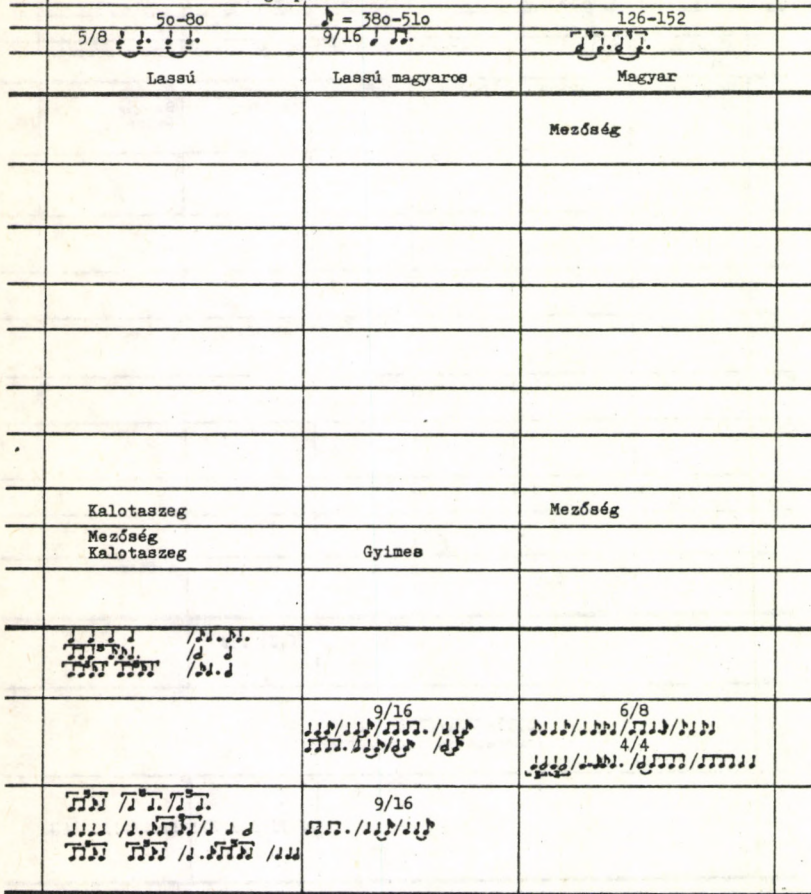 5o-8o ♪ = 38o-51o 126-152
5/8 9/16
Lassú Lassú magyaros Magyar
Mezőség
Kalotaszeg Mezőség
Mezőség
Kalotaszeg Gyimes
9/16 6/8
4/4
9/16